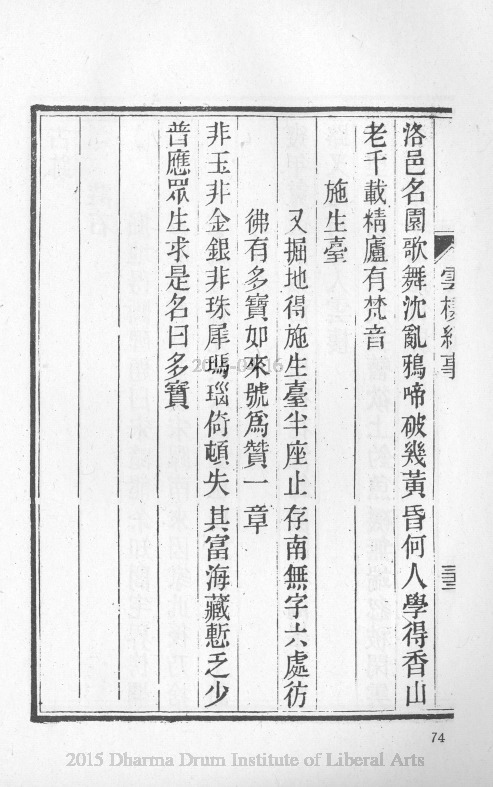 雲棲紀事
洛邑名園歌舞沈亂鴉啼破幾黃昏何人學得香山
老千載精廬有梵音
施生臺
又掘地得施生臺半座止存南無字六處彷
彿有多寶如來號爲贊一章
非玉非金銀非珠犀瑪瑙倚頓失其富海藏慙乏少
普應眾生求是名曰多寶
74
2015 Dharma Drum Institute of Liberal Arts